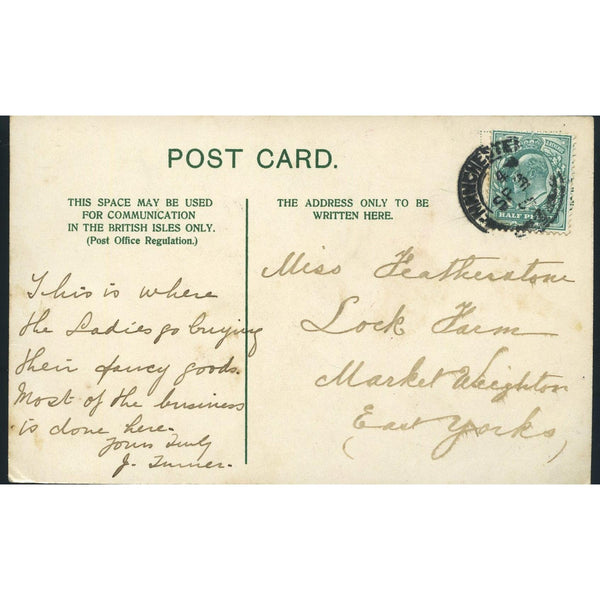 POST CARD.
THIS SPACE MAY BE USED
FOR COMMUNICATION
IN THE BRITISH ISLES ONLY.
(Post Office Regulation.)
This is where
the Ladies go buying
their fancy goods.
Most of the business
is done here.
Yours Truly
J. Turner.
THE ADDRESS ONLY TO BE
WRITTEN HERE.
Miss Featherstone
Lock Farm
Market Weighton
(East Yorks)
MANCHESTER
HALF